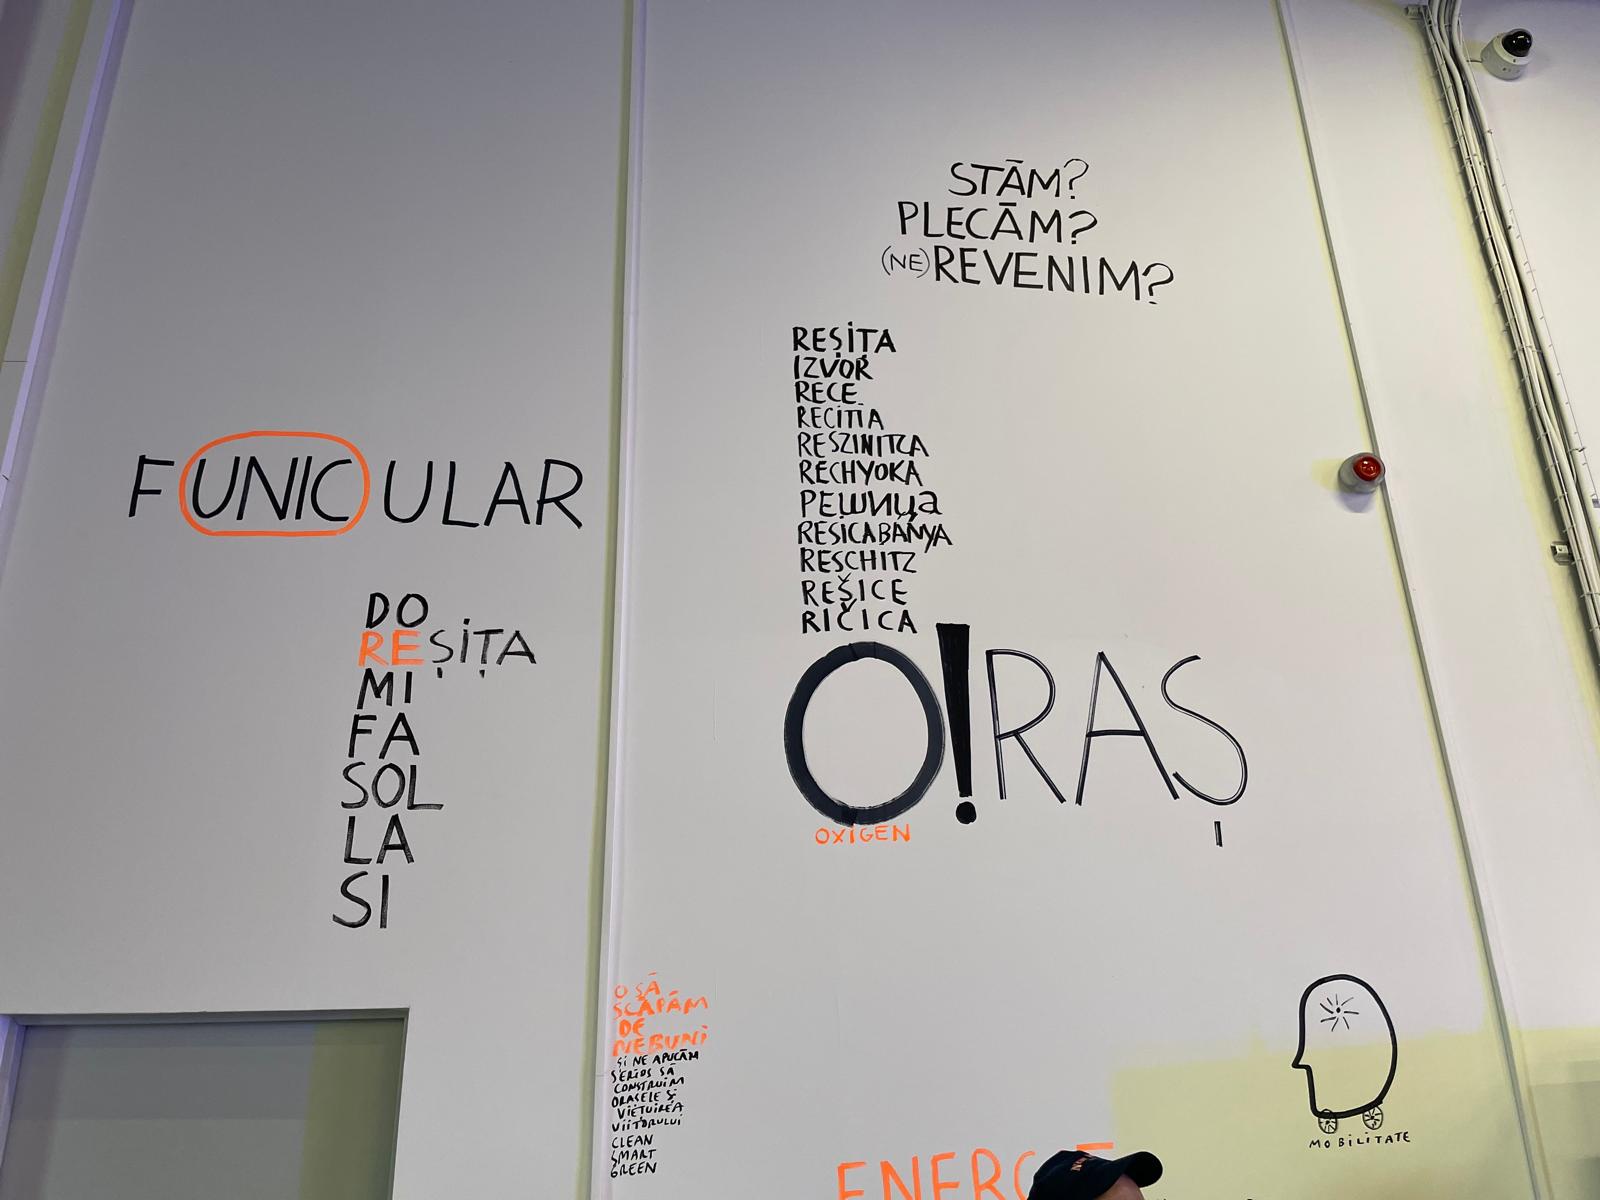 FUNICULAR
DO
REȘIȚA
MI
FA
SOL
LA
SI
STĂM?
PLECĂM?
(NE)REVENIM?
REȘIȚA
IZVOR
RECE
RECITIA
RESZINITCA
RECHYOKA
Решица
RESICABÁNYA
RESCHITZ
REŠICE
RIČICA
O!RAȘ
OXIGEN
O SĂ
SCĂPĂM
DE
NEBUNI
ȘI NE APUCĂM
SERIOS SĂ
CONSTRUIM
ORAȘELE ȘI
VIEȚUIREA
VIITORULUI
CLEAN
SMART
GREEN
MOBILITATE